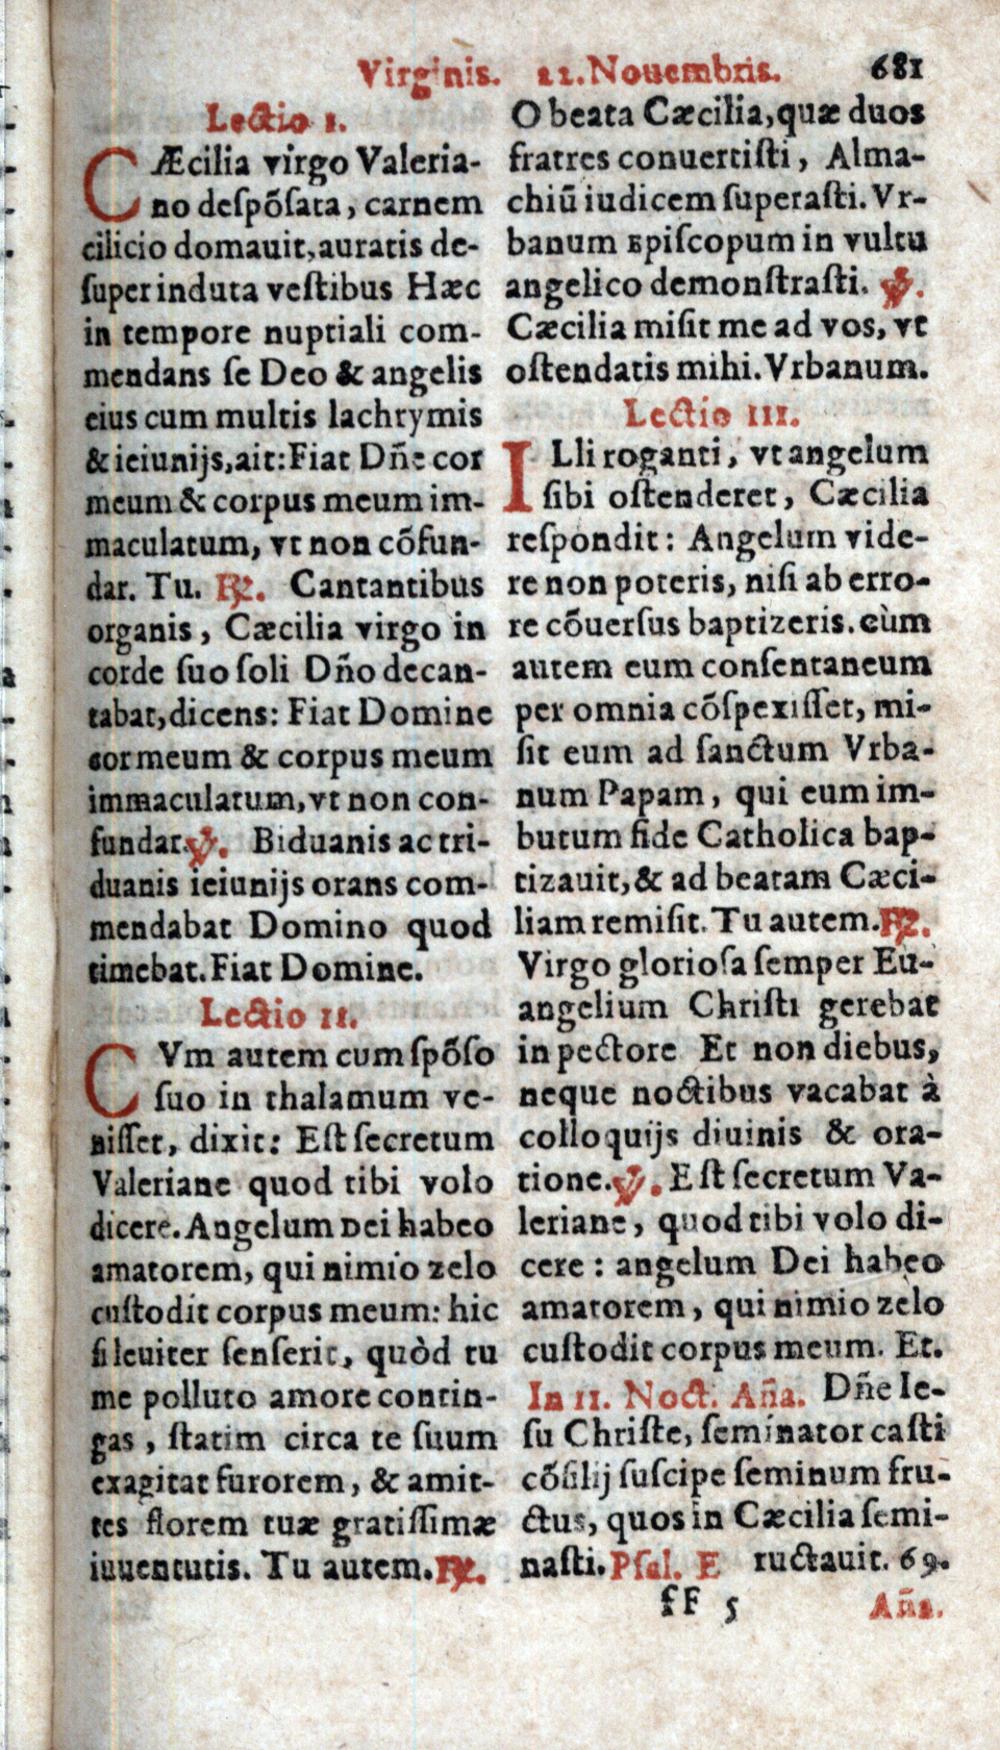 Virginis. 22. Nouembris. 681
Lectio I.
CÆcilia virgo Valeria-
no despõsata, carnem
cilicio domauit, auratis de-
super induta vestibus Hæc
in tempore nuptiali com-
mendans se Deo & angelis
eius cum multis lachrymis
& ieiunijs, ait: Fiat Dñe cor
meum & corpus meum im-
maculatum, vt non cõfun-
dar. Tu. ℟. Cantantibus
organis, Cæcilia virgo in
corde suo soli Dño decan-
tabat, dicens: Fiat Domine
cor meum & corpus meum
immaculatum, vt non con-
fundar. ℣. Biduanis ac tri-
duanis ieiunijs orans com-
mendabat Domino quod
timebat. Fiat Domine.
Lectio II.
CVm autem cum spõso
suo in thalamum ve-
nisset, dixit: Est secretum
Valeriane quod tibi volo
dicere. Angelum Dei habeo
amatorem, qui nimio zelo
custodit corpus meum: hic
si leuiter senserit, quòd tu
me polluto amore contin-
gas, statim circa te suum
exagitat furorem, & amit-
tes florem tuæ gratissimæ
iuuentutis. Tu autem. ℟.
O beata Cæcilia, quæ duos
fratres conuertisti, Alma-
chiũ iudicem superasti. Vr-
banum Episcopum in vultu
angelico demonstrasti. ℣.
Cæcilia misit me ad vos, vt
ostendatis mihi. Vrbanum.
Lectio III.
ILli roganti, vt angelum
sibi ostenderet, Cæcilia
respondit: Angelum vide-
re non poteris, nisi ab erro-
re cõuersus baptizeris. cùm
autem eum consentaneum
per omnia cõspexisset, mi-
sit eum ad sanctum Vrba-
num Papam, qui eum im-
butum fide Catholica bap-
tizauit, & ad beatam Cæci-
liam remisit. Tu autem. ℟.
Virgo gloriosa semper Eu-
angelium Christi gerebat
in pectore Et non diebus,
neque noctibus vacabat à
colloquijs diuinis & ora-
tione. ℣. Est secretum Va-
leriane, quod tibi volo di-
cere: angelum Dei habeo
amatorem, qui nimio zelo
custodit corpus meum. Et.
In II. Noct. Aña. Dñe Ie-
su Christe, seminator casti
cõsilij suscipe seminum fru-
ctus, quos in Cæcilia semi-
nasti. Psal. E ructauit. 69.
fF 5 Aña.